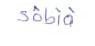 sôbìà